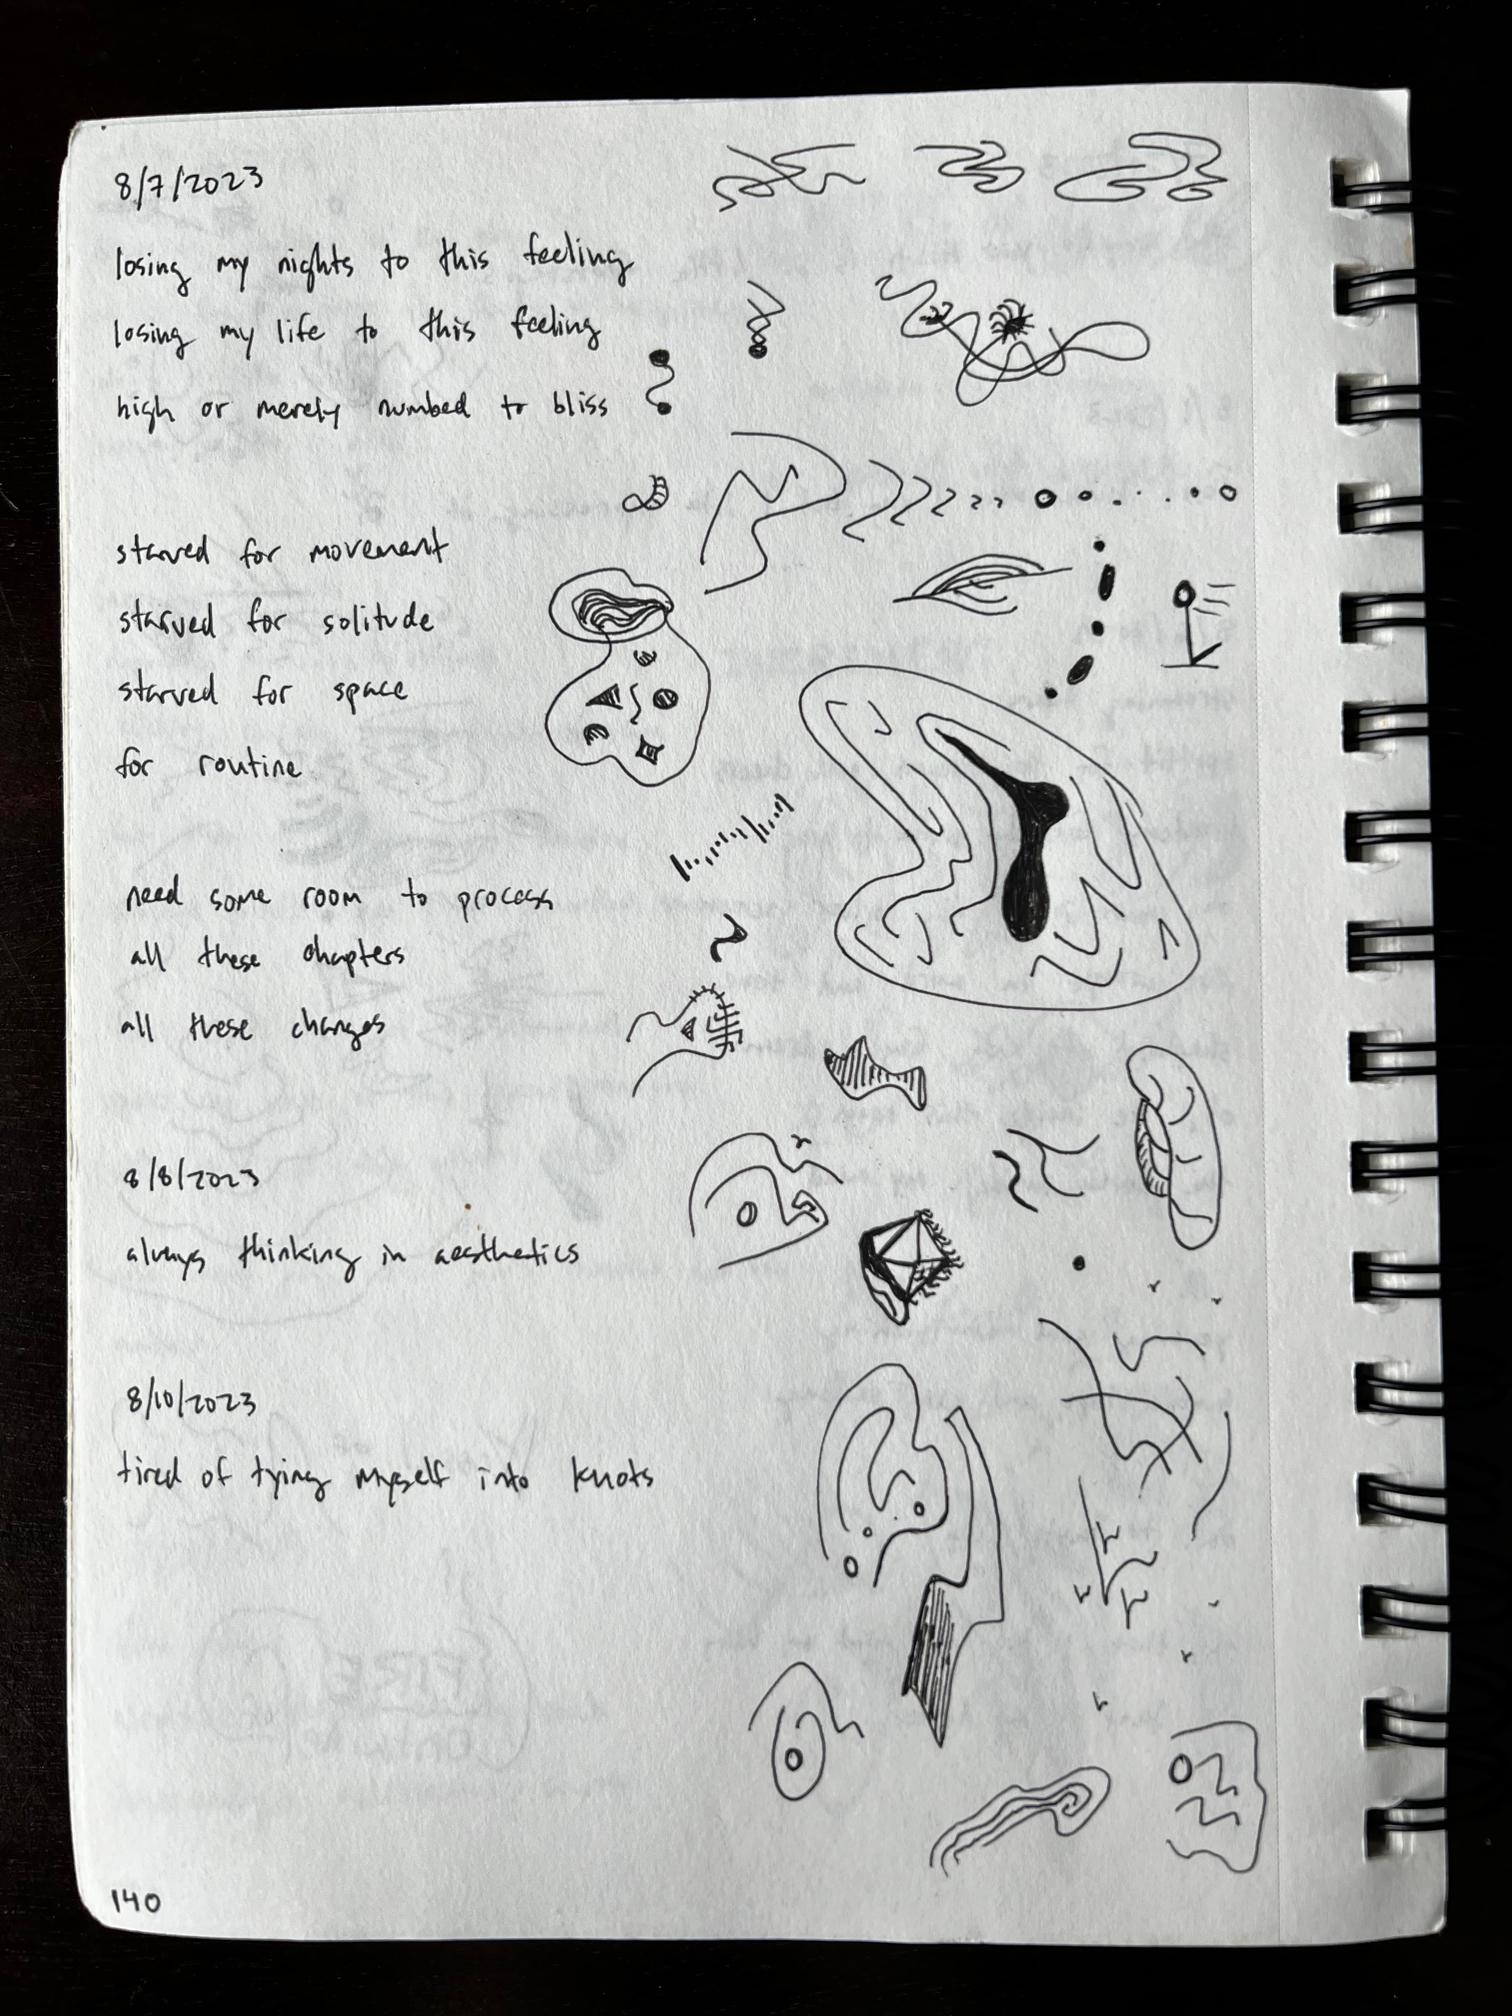 8/7/2023
losing my nights to this feeling
losing my life to this feeling
high or merely numbed to bliss
starved for movement
starved for solitude
starved for space
for routine
need some room to process
all these chapters
all these changes
8/8/2023
always thinking in aesthetics
8/10/2023
tired of tying myself into knots
140